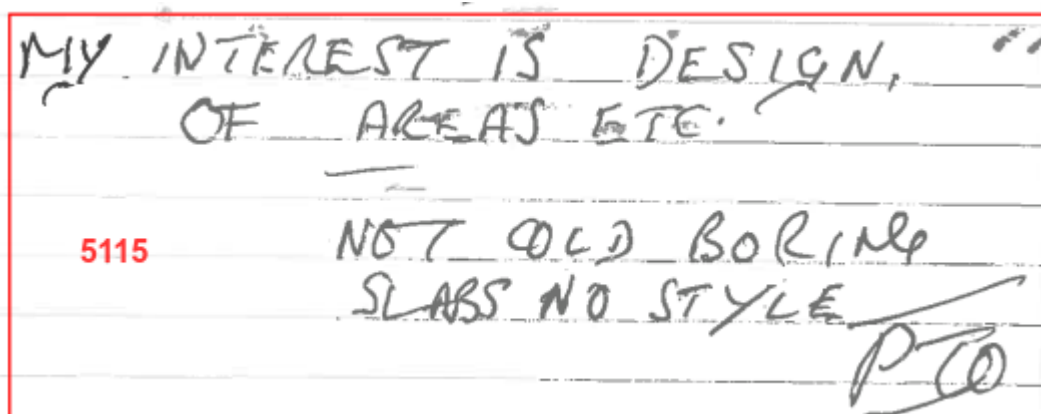 MY INTEREST IS DESIGN,
OF AREAS ETC.
5115
NOT COLD BORING
SLABS NO STYLE
PTO